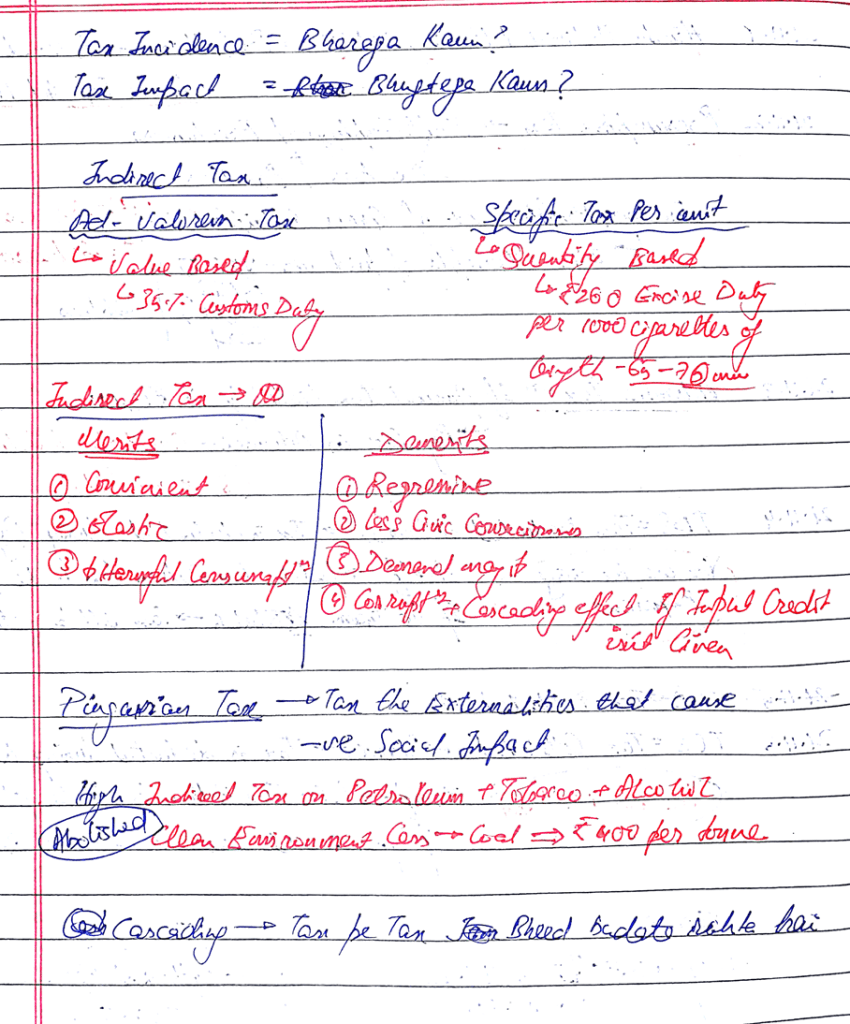 Tax Incidence = Bharega Kaun?
Tax Impact = Bhugtega Kaun?
Indirect Tax
Ad-Valorem Tax
↳ Value Based
↳ 35% Customs Duty
Specific Tax Per unit
↳ Quantity Based
↳ ₹260 Excise Duty
per 1000 cigarettes of
length - 65-70 mm
Indirect Tax →
Merits
① Convinient
② Elastic
③ ↓ Harmful Consumptⁿ
Demerits
① Regressive
② Less Civic Consciousness
③ Demand may ↓
④ Corruptⁿ + Cascading effect If Input Credit
isn't Given
Pingauvian Tax → Tax the Externalities that cause
-ve Social Impact
High Indirect Tax on Petroleum + Tobacco + Alcohol
Abolished Clean Environment Cess → Coal ⇒ ₹400 per tonne
Cascading → Tax pe Tax Bheed badato
hai